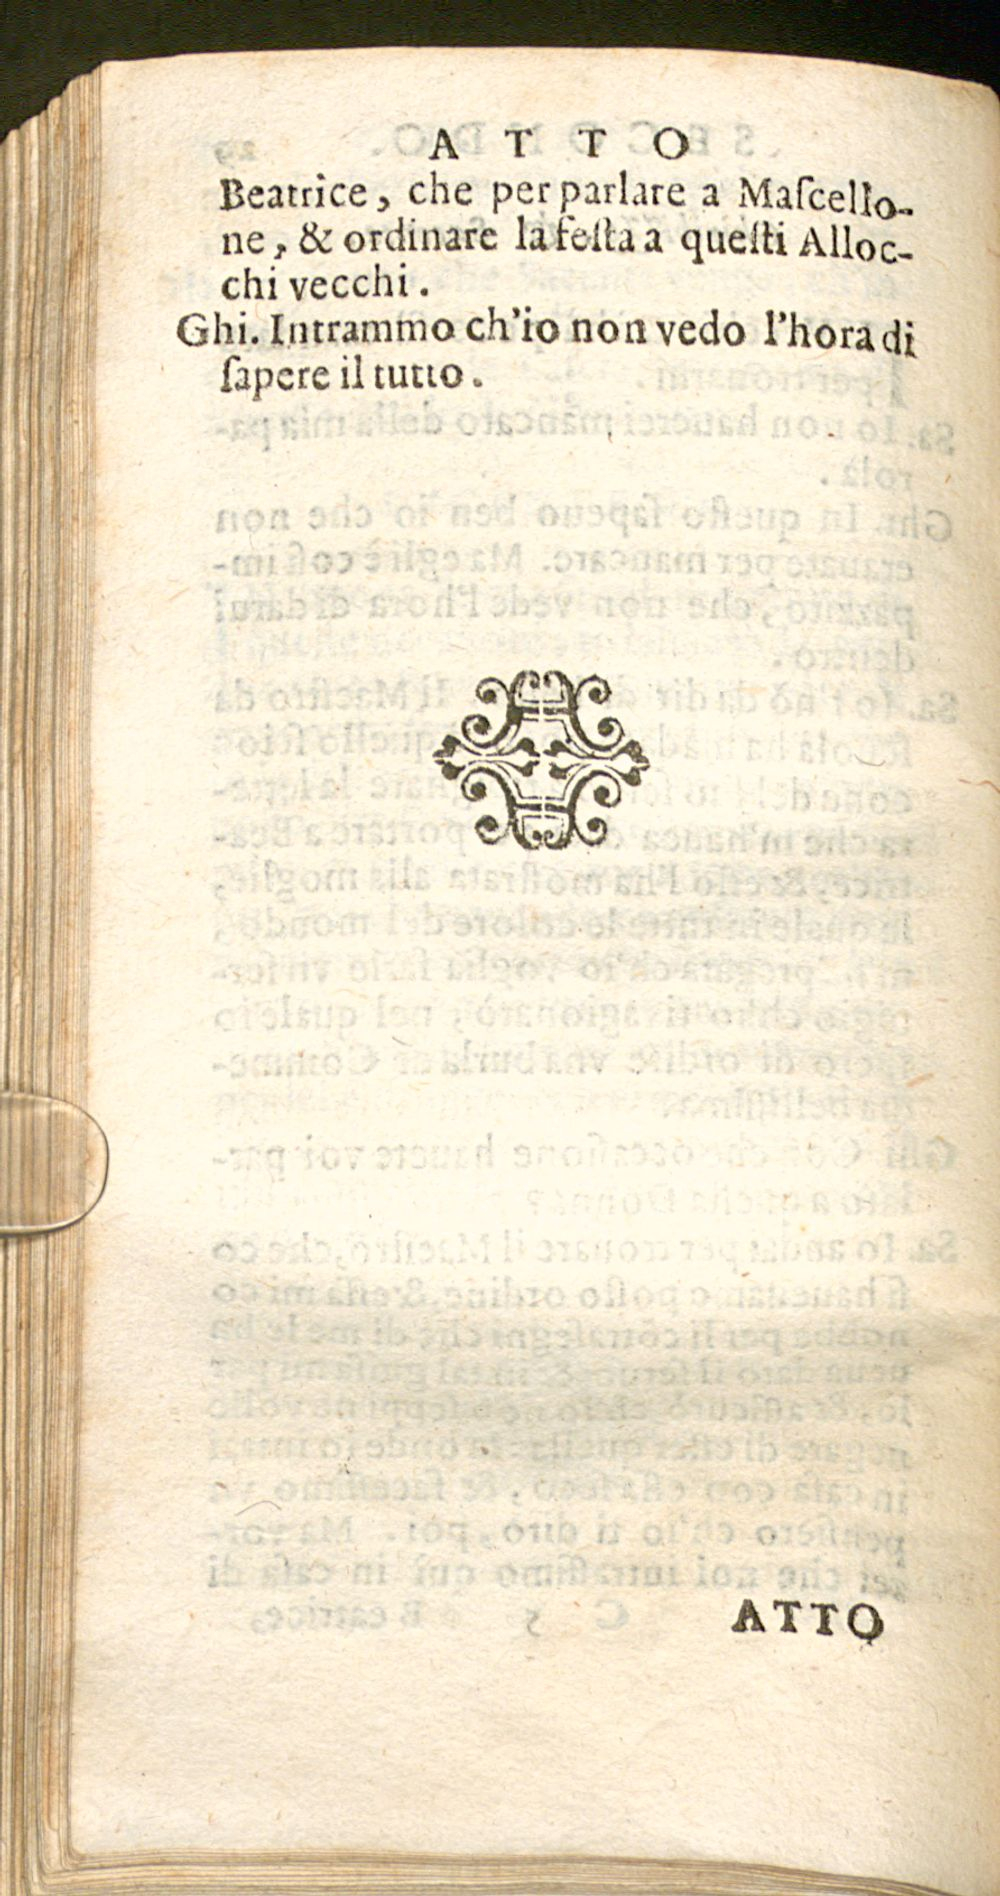 ATTO
Beatrice, che per parlare a Maſcello-
ne, & ordinare la feſta a queſti Alloc-
chi vecchi.
Ghi. Intrammo ch'io non vedo l'hora di
ſapere il tutto.
ATTO